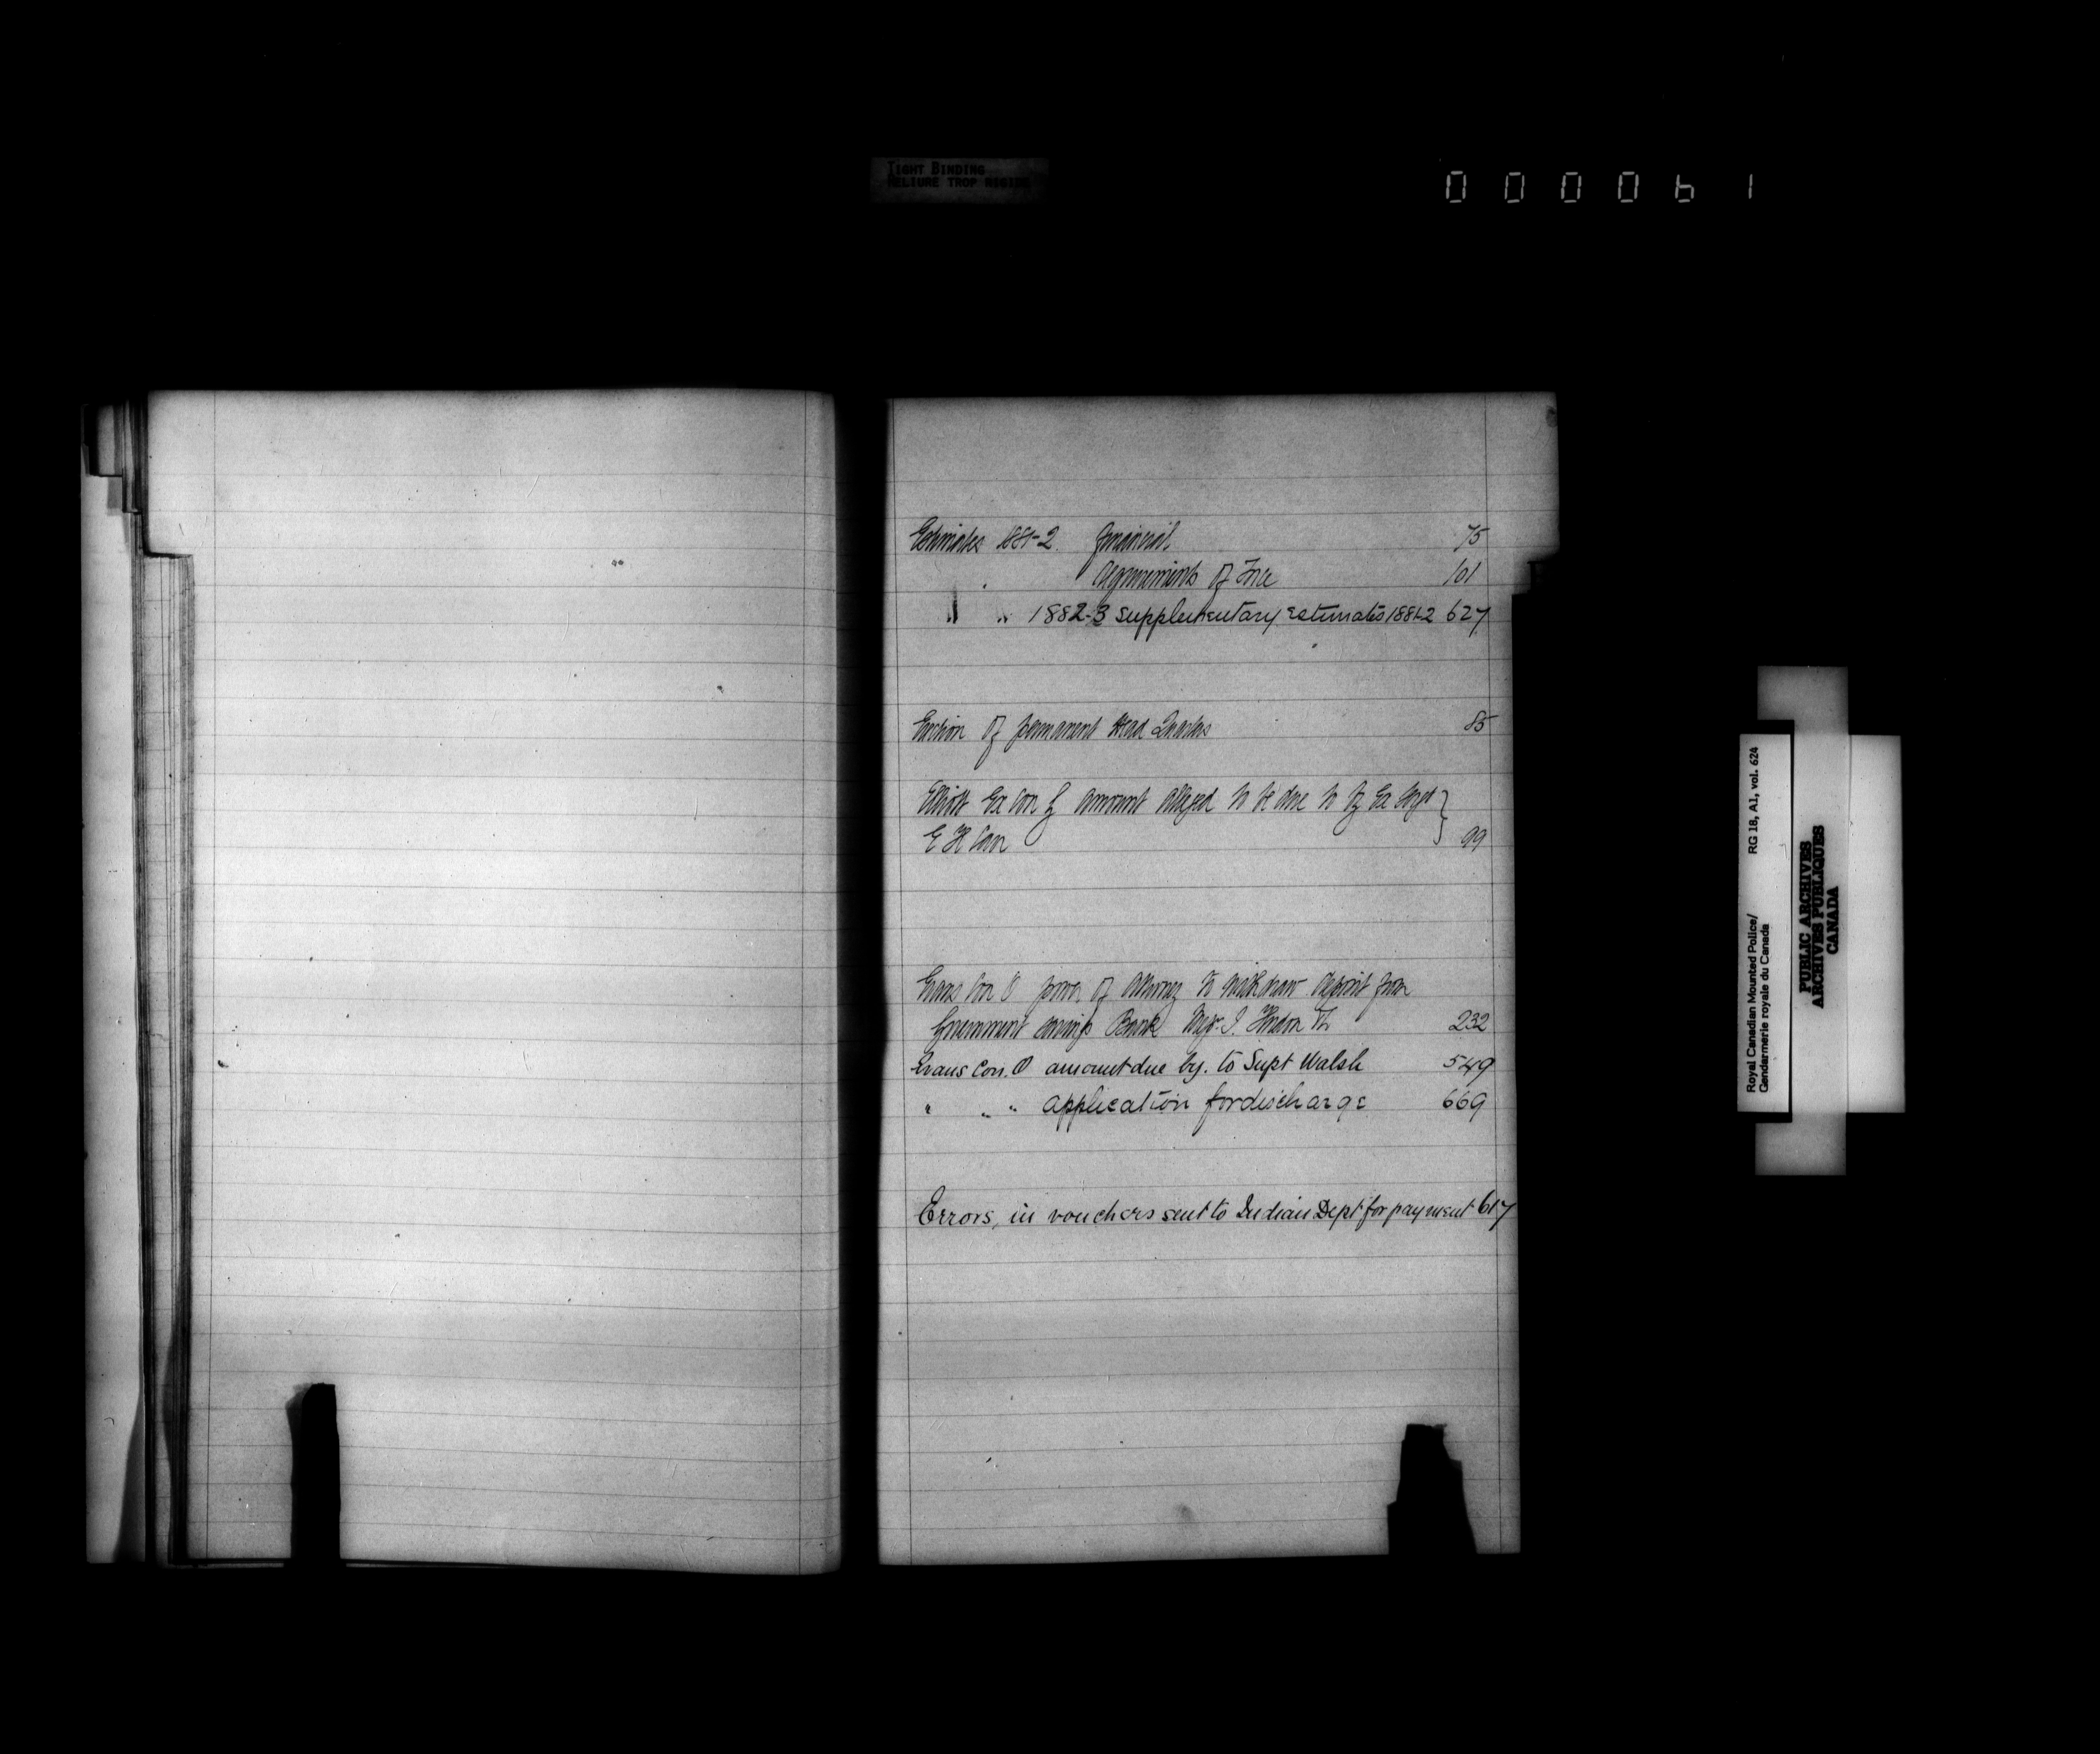 TIGHT BINDING
RELIURE TROP RIGIDE
000061
Estimates 1881-2 financial 75
requirements of Force 101
" " 1882-3 supplementary estimates 1881-2 627
Erection of permanent Head Quarters 85
Elliott Ex Con f amount alleged to be due to by Ex Sergt
E H Carr 99
Evans Con O power of Attorney to withdraw deposit from
Government savings Bank 232
Evans Con. O amount due by. to Supt Walsh 549
" " " application for discharge 669
Errors, in vouchers sent to Indian Dept for payment 617
Royal Canadian Mounted Police/
Gendarmerie royale du Canada
RG 18, A1, vol. 624
PUBLIC ARCHIVES
ARCHIVES PUBLIQUES
CANADA